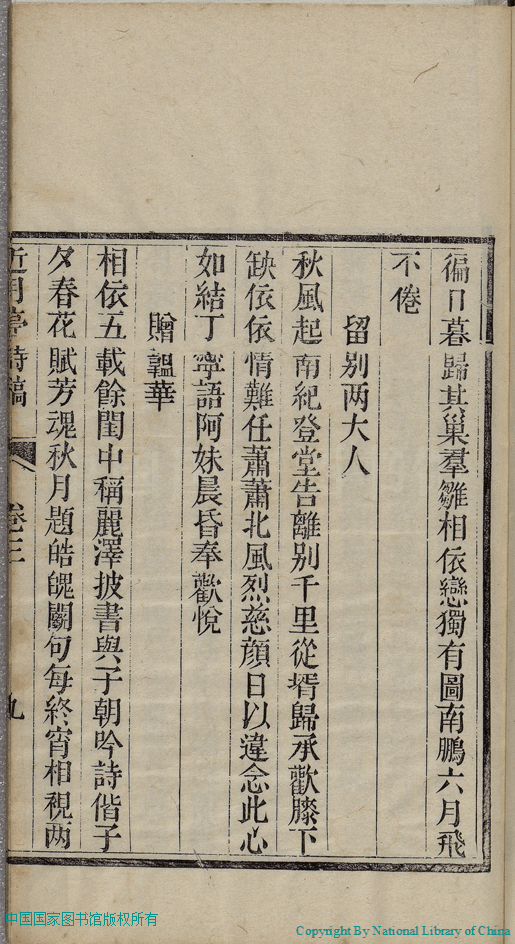 徧日暮歸其巢羣雛相依戀獨有圖南鵬六月飛
不倦
留別两大人
秋風起南紀登堂告離別千里從壻歸承歡膝下
缺依依情難任蕭蕭北風烈慈顔日以違念此心
如結丁寧語阿妹晨昏奉歡悅
贈韞華
相依五載餘閨中稱麗澤披書與子朝吟詩偕子
夕春花賦芳魂秋月題皓魄鬭句每終宵相視两
近月亭詩稿 卷二 九
中国国家图书馆版权所有
Copyright By National Library of China